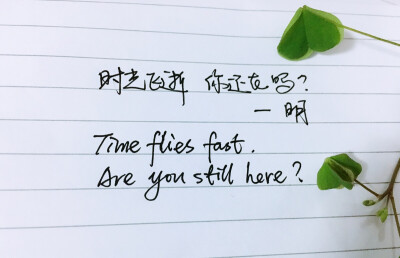 时光飞逝 你还在吗?
— 明
Time flies fast.
Are you still here?